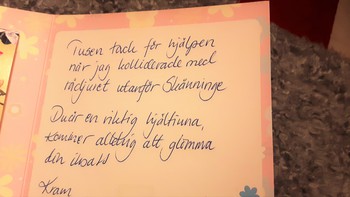 Tusen tack för hjälpen
när jag kolliderade med
rådjuret utanför Skänninge
Du är en riktig hjältinna,
kommer aldrig att glömma
din insats
Kram